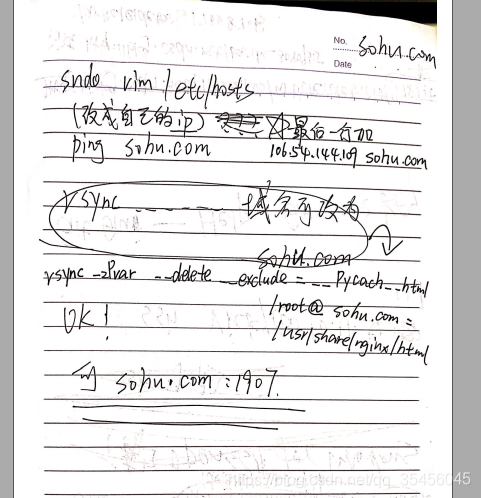 No. sohu.com
Date
sudo vim /etc/hosts
(改成自己的ip) 最后一行加
ping sohu.com 106.54.144.109 sohu.com
rsync _ _ _ _ _ _ 域名可改为
sohu.com
rsync -zPvar --delete --exclude = __Pycach__ html
/root@ sohu.com =
/usr/share/nginx/html
OK!
sohu.com:1907.
https://blog.csdn.net/qq_35456045